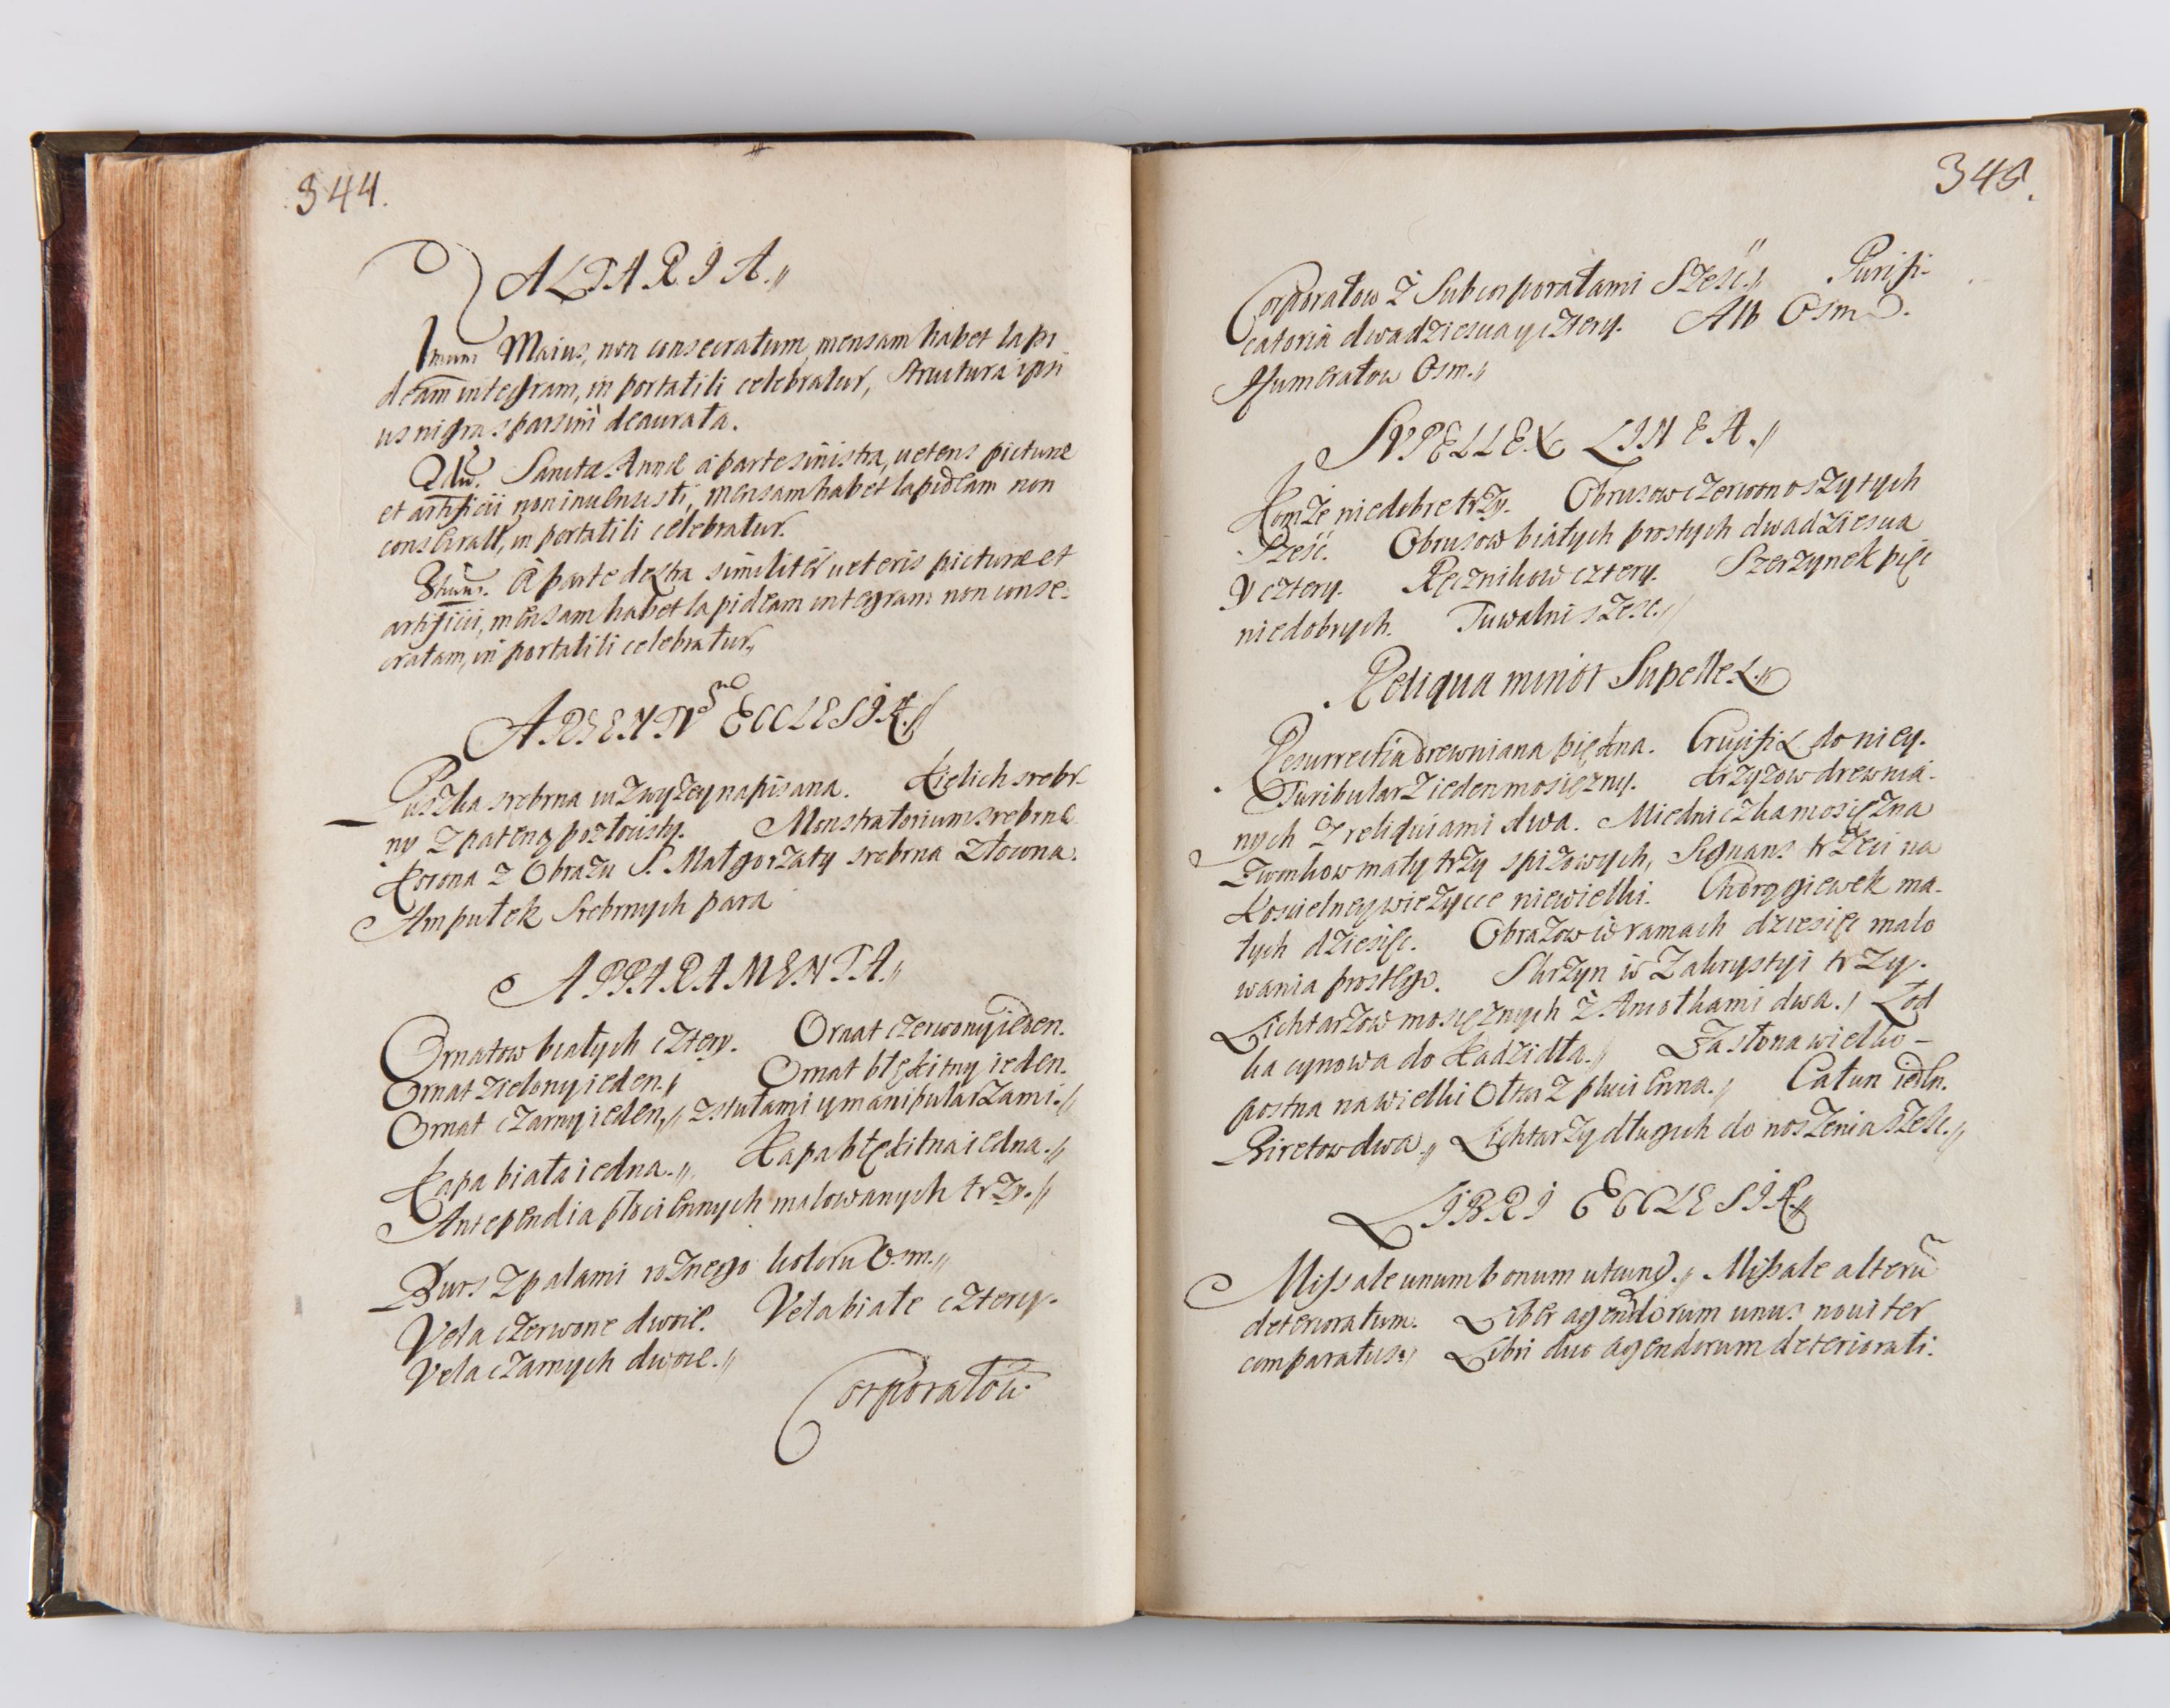 344.
ALTARIA.
1mum Maius, non consecratum, mensam habet lapi
deam integram, in portatili celebratur, structura ipsi
us nigra sparsim deaurata.
2dum. Sanctæ Annæ à parte sinistra, veteris picturæ
et artificii non inuenusti, mensam habet lapideam non
consecratā, in portatili celebratur.
3tium. à parte dextra similiter veteris picturæ et
artificii, mensam habet lapideam integram non conse-
cratam, in portatili celebratur.
ARGENTV ECCLESIÆ
Puszka srebrna iuz wyzey napisana. Kielich srebr-
ny z pateną pozłocisty. Monstratorium srebrne
Korona z Obrazu S. Małgorzaty srebrna złocona.
Ampułek Srebrnych para
APPARAMENTA.
Ornatow białych cztery. Ornat czerwony ieden.
Ornat zielony ieden. Ornat błękitny ieden.
Ornat czarny ieden, z stułami y manipularzami.
Kapa biała iedna. Kapa błękitna iedna.
Antependia płociennych malowanych trzy.
Burs z palami roznego koloru Osm.
Vela czerwone dwoie. Vela białe cztery.
Vela czarnych dwoie.
Corporałow
345.
Corporałow z Subcorporałami Szesc. Purifi-
catoria dwadziescia y cztery. Alb Osm.
Humerałow Osm.
SVPELLEX LINEA.
Komże niedobre trzy. Obrusow czerwono szytych
Szesć. Obrusow białych prostych dwadziescia
y cztery. Ręcznikow cztery. Szerzynek pięc
niedobrych. Tuwalni szesc.
Reliqua minor Supellex
Resurrectia drewniana piękna. Crucifix do niey.
Turibularz ieden mosięzny. Krzyzow drewnia-
nych z reliquiami dwa. Miedniczka mosięzna
Dzwonkow mały trzy spizowych, Signans trzeci na
Koscielney wiezycce niewielki. Chorągiewek ma-
łych dziesięc. Obrazow w ramach dziesięc malo
wania prostego. Skrzyn w Zakrystyi trzy.
Lichtarzow mosięznych z Aniołkami dwa. Łod
ka cynowa do Kadzidła. Zasłona wielko-
postna na wielki Ołtarz płocienna. Całun ieden.
Biretow dwa. Lichtarzy długych do noszenia szesc.
LIBRI ECCLESIÆ
Missale unum bonum utcunq. Missale alterū
deterioratum. Liber agendorum unus noviter
comparatus. Libri duo agendorum deteriorati.